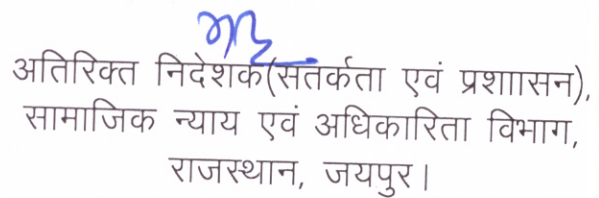 अतिरिक्त निदेशक(सतर्कता एवं प्रशाासन),
सामाजिक न्याय एवं अधिकारिता विभाग,
राजस्थान, जयपुर।